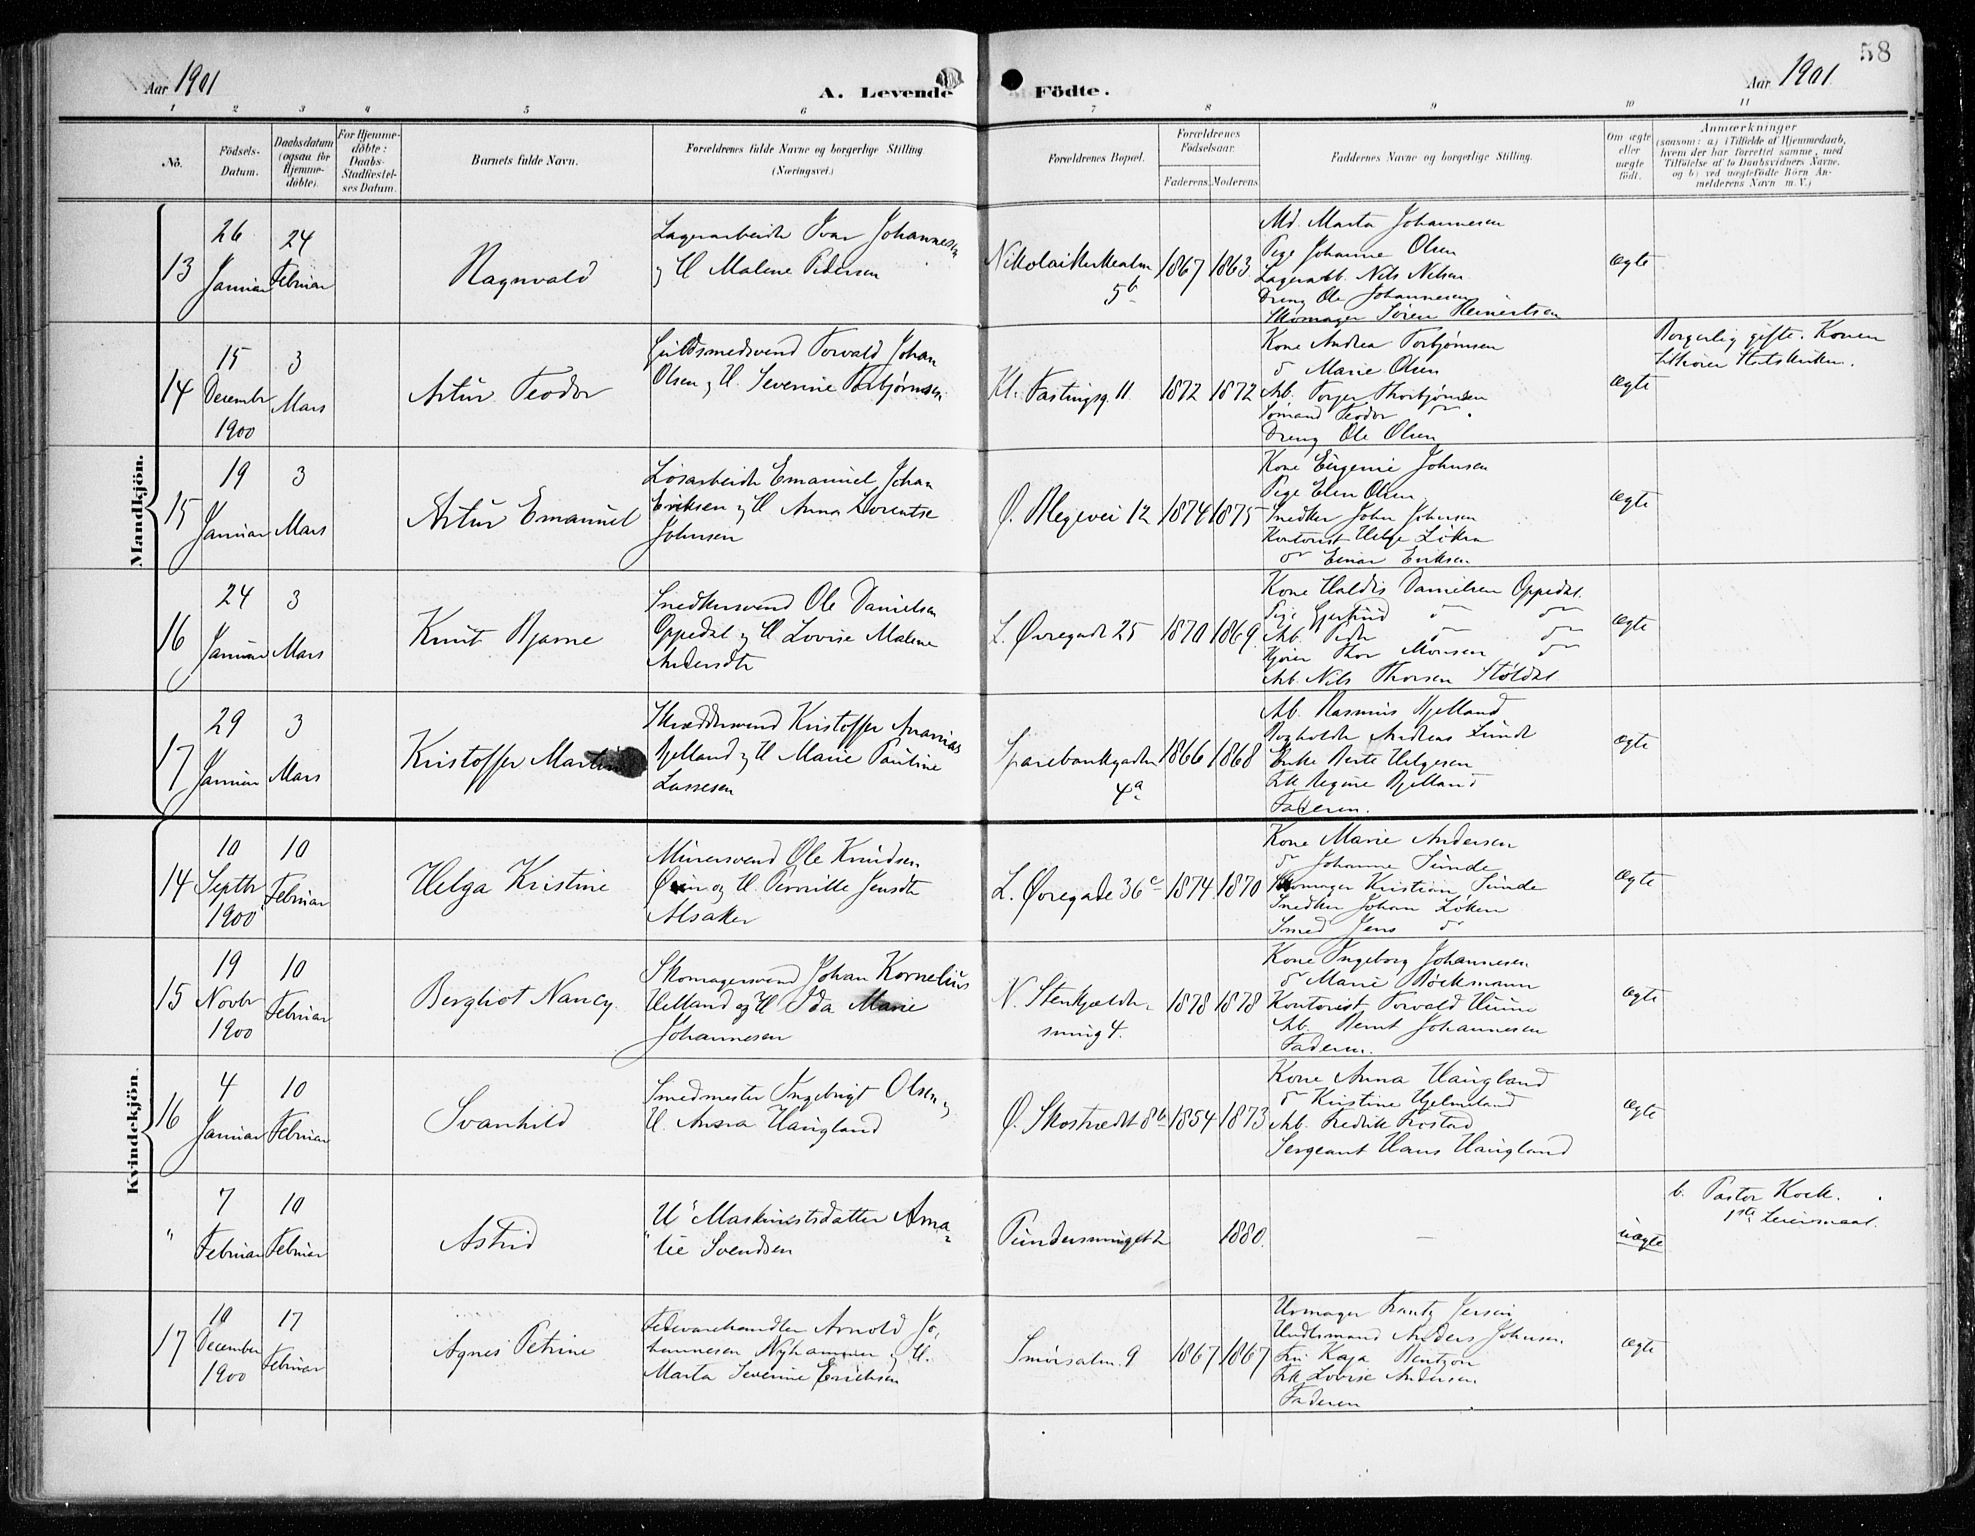 58
Aar 1901
A. Levende Födte.
Aar 1901.
1 2 3 4 5 6 7 8 9 10 11
No.
Födsels-Datum.
Daabsdatum (ogsaa for Hjemme-döbte).
For Hjemme-döbte: Daabs-Stadfæstel-ses Datum.
Barnets fulde Navn.
Forældrenes fulde Navne og borgerlige Stilling
(Næringsvei.)
Forældrenes Bopæl.
Forældrenes Födselsaar.
Faderens. Moderens.
Faddernes Navne og borgerlige Stilling.
Om ægte eller uægte födt.
Anmærkninger
(saasom: a) i Tilfælde af Hjemmedaab,
hvem der har forrettet samme, med
Tilföielse af to Daabsvidners Navne,
og b) ved uægtefödte Börn An-
melderens Navn m. V.)
Mandkjön.
13
26 Januar
24 Februar
Ragnvald
Lagerarbeider Ivar Johannesen
og H. Malene Pedersen
Nikolaikirkealm 5b
1867 1863
Md. Marta Johannesen
Pige Johanne Olsen
Lagerarb. Nils Nilsen
Dreng Ole Johannesen
Skomager Sören Reinertsen
ægte
14
15 Decembr 1900
3 Mars
Artur Teodor
Guldsmedsvend Torvald Johan
Olsen og H. Severine Torbjørnsen
Kl. Fastingsg. 11
1872 1872
Kone Andrea Torbjørnsen
do Marie Olsen
Arb. Torger Thorbjørnsen
Sömand Teodor do
Dreng Ole Olsen
ægte
Borgerlig gifte. Konen
tilhører Statskirken.
15
19 Januar
3 Mars
Artur Emanuel
Løsarbeider Emanuel Johan
Eriksen og H. Anna Lorentse
Johnsen
Ø. Blegevei 12
1874 1875
Kone Eugenie Johnsen
Pige Elen Olsen
Snedker John Johnsen
Kontorist Helge Löken
do Einar Eriksen
ægte
16
24 Januar
3 Mars
Knut Bjarne
Snedkersvend Ole Danielsen
Oppedal og H. Lovise Malene
Andersdtr
L. Øvregade 25
1870 1869
Kone Haldis Danielsen Oppedal.
Pige Gjertrud do do
Arb. Peder do do
Kjører Thor Monsen do
Arb. Nils Thorsen Støldal
ægte
17
29 Januar
3 Mars
Kristoffer Martin
Skræddersvend Kristoffer Ananias
Bjelland og H. Marie Pauline
Lassesen
Sparebankgaden 4a
1866 1868
Arb. Rasmus Bjelland
Bogholder Andreas Lunde
Enke Berte Helgesen
Frk Regine Bjelland
Faderen.
ægte
Kvindekjön.
14
10 Septbr 1900
10 Februar
Helga Kristine
Murersvend Ole Knudsen
og H. Pernille Jensdtr
Alsaker
L. Øvregade 36c
1874 1870
Kone Marie Andersen
do Johanne Sunde
Skomager Kristian Sunde
Snedker Johan Löken
Smed Jens do
ægte
15
19 Novbr 1900
10 Februar
Bergliot Nancy.
Skomagersvend Johan Kornelius
Helland og H. Ida Marie
Johannesen
N. Stenkjelder-
smug 4.
1878 1878
Kone Ingeborg Johannesen
do Marie Böckmann
Kontorist Torvald Huun
Arb. Bernt Johannesen
Faderen.
ægte
16
4 Januar
10 Februar
Svanhild
Smedmester Ingebrigt Olsen og
H. Anna Haugland
Ø. Skostrædet 8b
1854 1873
Kone Anna Haugland
do Kristine Hjelmeland
Arb. Fredrik Frostad
Sergeant Hans Haugland
ægte
"
7 Februar
10 Februar
Astrid
U' Maskinistdatter Ama-
lie Svendsen
Pundersmuget 2
1880.
—
uægte
b. Pastor Koch.
1ste Leiermaal.
17
10 December 1900
17 Februar
Agnes Petrine
Fedevarehandler Arnold Jo-
hannesen Nyhammer og H.
Marta Severine Erichsen
Smörsalm. 9
1867 1867
Urmager Frantz Jensen
Handelsmand Anders Johnsen.
Fru Kaja Bentzon
Frk Lovise Andersen
Faderen
ægte